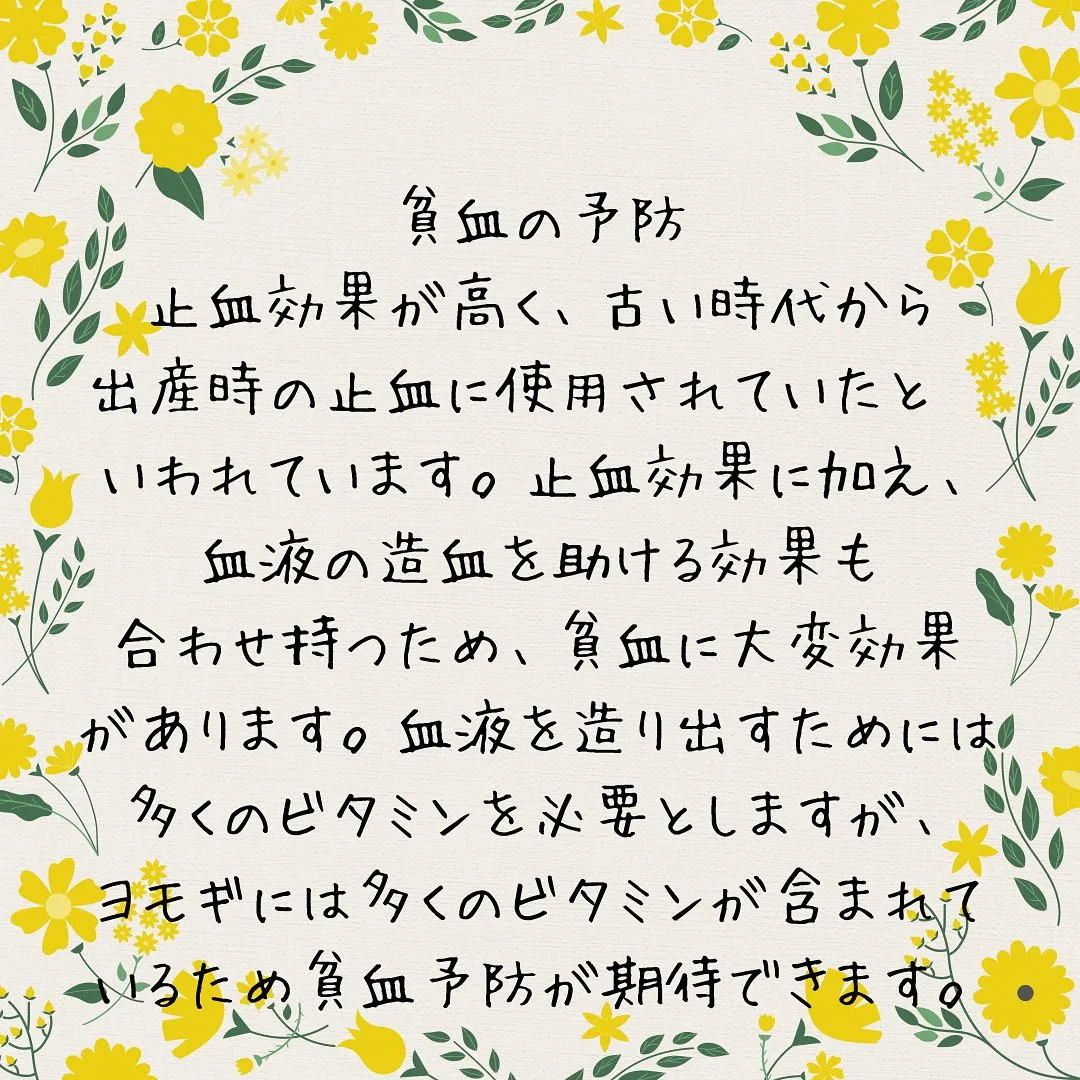 貧血の予防
止血効果が高く、古い時代から
出産時の止血に使用されていたと
いわれています。止血効果に加え、
血液の造血を助ける効果も
合わせ持つため、貧血に大変効果
があります。血液を造り出すためには
多くのビタミンを必要としますが、
ヨモギには多くのビタミンが含まれて
いるため貧血予防が期待できます。